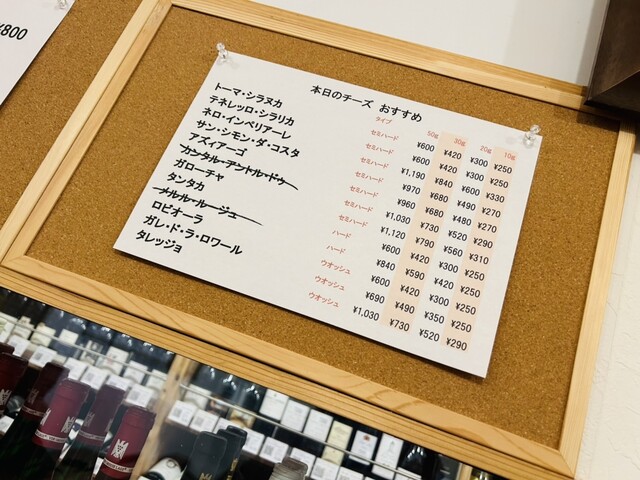 ¥800
本日のチーズ おすすめ
タイプ 50g 30g 20g 10g
トーマ・シラヌカ セミハード ¥600 ¥420 ¥300 ¥250
テネレッロ・シラリカ セミハード ¥600 ¥420 ¥300 ¥250
ネロ・インペリアーレ セミハード ¥1,190 ¥840 ¥600 ¥330
サン・シモン・ダ・コスタ セミハード ¥970 ¥680 ¥490 ¥270
アズィアーゴ セミハード ¥960 ¥680 ¥480 ¥270
カンタル・アントル・ドゥー セミハード ¥1,030 ¥730 ¥520 ¥290
ガローチャ セミハード ¥1,120 ¥790 ¥560 ¥310
タンタカ ハード ¥600 ¥420 ¥300 ¥250
メルル・ルージュ ハード ¥840 ¥590 ¥420 ¥250
ロビオーラ ウオッシュ ¥600 ¥420 ¥300 ¥250
ガレ・ド・ラ・ロワール ウオッシュ ¥690 ¥490 ¥350 ¥250
タレッジョ ウオッシュ ¥1,030 ¥730 ¥520 ¥290